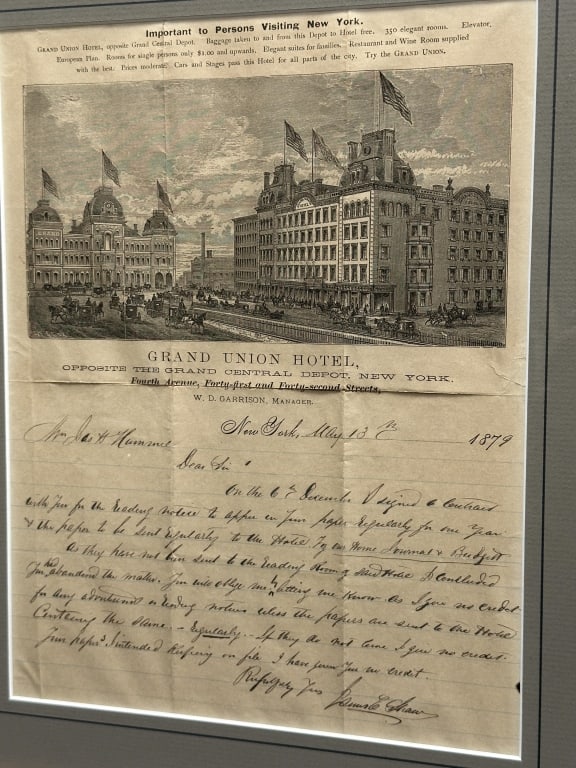 Important to Persons Visiting New York.
GRAND UNION HOTEL, opposite Grand Central Depot. Baggage taken to and from this Depot to Hotel free. 350 elegant rooms. Elevator.
European Plan. Rooms for single persons only $1.00 and upwards. Elegant suites for families. Restaurant and Wine Room supplied
with the best. Prices moderate. Cars and Stages pass this Hotel for all parts of the city. Try the GRAND UNION.
GRAND UNION HOTEL,
OPPOSITE THE GRAND CENTRAL DEPOT, NEW YORK.
Fourth Avenue, Forty-first and Forty-second Streets,
W. D. GARRISON, MANAGER.
New York, May 13th 1879
Jas H Hummel
Dear Sir
On the 6th December I signed a Contract
with you for the Reading notice to appear in your paper Regularly for one Year
& the paper to be sent Regularly to the Hotel Home Journal &
As they have not been sent to the Reading Room of said Hotel I Concluded
you had abandoned the matter. You will oblige me by letting me Know as I give no credit
for any advertisement or Reading notices unless the papers are sent to the Hotel
Containing the Same - Regularly - If they do not come I give no credit.
Your paper I intended Keeping on file I have given you no credit.
Respectfully Yours
James C Shaw